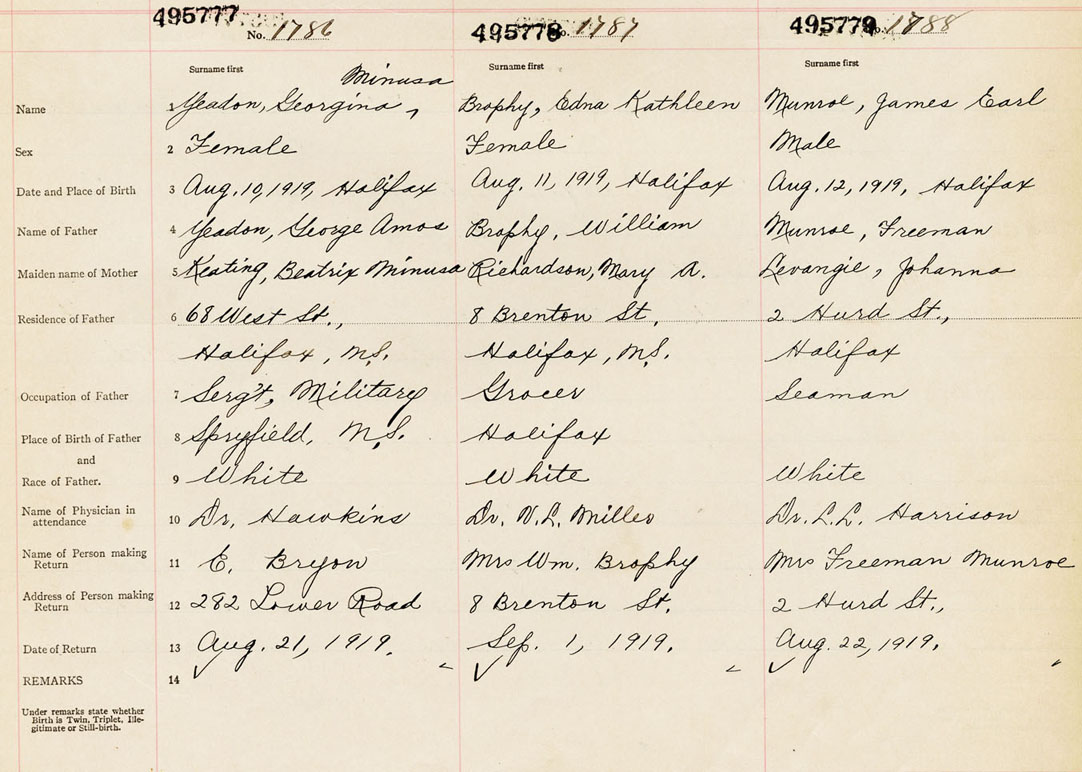 495777 No. 1786 495778 No. 1787 495779 No. 1788
Surname first Surname first Surname first
Minusa
Name 1 Yeadon, Georgina, Brophy, Edna Kathleen Munroe, James Earl
Sex 2 Female Female Male
Date and Place of Birth 3 Aug. 10, 1919, Halifax Aug. 11, 1919, Halifax Aug. 12, 1919, Halifax
Name of Father 4 Yeadon, George Amos Brophy, William Munroe, Freeman
Maiden name of Mother 5 Keating, Beatrix Minusa Richardson, Mary A. Levangie, Johanna
Residence of Father 6 68 West St., 8 Brenton St, 2 Hurd St.,
Halifax, N.S. Halifax, N.S. Halifax
Occupation of Father 7 Serg't, Military Grocer Seaman
Place of Birth of Father 8 Spryfield, N.S. Halifax
and
Race of Father. 9 White White White
Name of Physician in
attendance 10 Dr. Hawkins Dr. W.L. Miller Dr. L.L. Harrison
Name of Person making
Return 11 E. Bryon Mrs Wm. Brophy Mrs Freeman Munroe
Address of Person making
Return 12 282 Lower Road 8 Brenton St. 2 Hurd St.,
Date of Return 13 Aug. 21, 1919. Sep. 1, 1919. Aug. 22, 1919.
REMARKS 14
Under remarks state whether
Birth is Twin, Triplet, Ille-
gitimate or Still-birth.